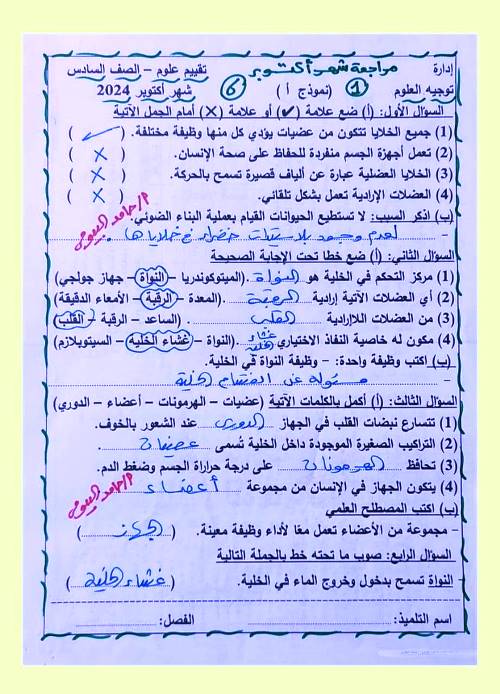 إدارة مراجعة شهر أكتوبر تقييم علوم – الصف السادس
توجيه العلوم 1 (نموذج أ) 6 شهر أكتوبر 2024
السؤال الأول: (أ) ضع علامة (✓) أو علامة (X) أمام الجمل الآتية
(1) جميع الخلايا تتكون من عضيات يؤدي كل منها وظيفة مختلفة. (✓)
(2) تعمل أجهزة الجسم منفردة للحفاظ على صحة الإنسان. (X)
(3) الخلايا العضلية عبارة عن ألياف قصيرة تسمح بالحركة. (X)
(4) العضلات الإرادية تعمل بشكل تلقائي. (X)
(ب) اذكر السبب: لا تستطيع الحيوانات القيام بعملية البناء الضوئي.
– لعدم وجود بلاستيدات خضراء في خلاياها.
السؤال الثاني: (أ) ضع خطا تحت الإجابة الصحيحة
(1) مركز التحكم في الخلية هو النواة. (الميتوكوندريا – النواة – جهاز جولجي)
(2) أي العضلات الآتية إرادية الرقبة. (المعدة – الرقبة – الأمعاء الدقيقة)
(3) من العضلات اللاإرادية القلب. (الساعد – الرقبة – القلب)
(4) مكون له خاصية النفاذ الاختياري غشاء الخلية. (النواة – غشاء الخلية – السيتوبلازم)
(ب) اكتب وظيفة واحدة: – وظيفة النواة في الخلية.
– مسئولة عن انقسام الخلية
السؤال الثالث: (أ) أكمل بالكلمات الآتية (عضيات – الهرمونات – أعضاء – الدوري)
(1) تتسارع نبضات القلب في الجهاز الدوري عند الشعور بالخوف.
(2) التراكيب الصغيرة الموجودة داخل الخلية تُسمى عضيات.
(3) تحافظ الهرمونات على درجة حرارة الجسم وضغط الدم.
(4) يتكون الجهاز في الإنسان من مجموعة أعضاء
(ب) اكتب المصطلح العلمي
– مجموعة من الأعضاء تعمل معًا لأداء وظيفة معينة. (الجهاز)
السؤال الرابع: صوب ما تحته خط بالجملة التالية
– النواة تسمح بدخول وخروج الماء في الخلية. (غشاء الخلية)
اسم التلميذ: الفصل: